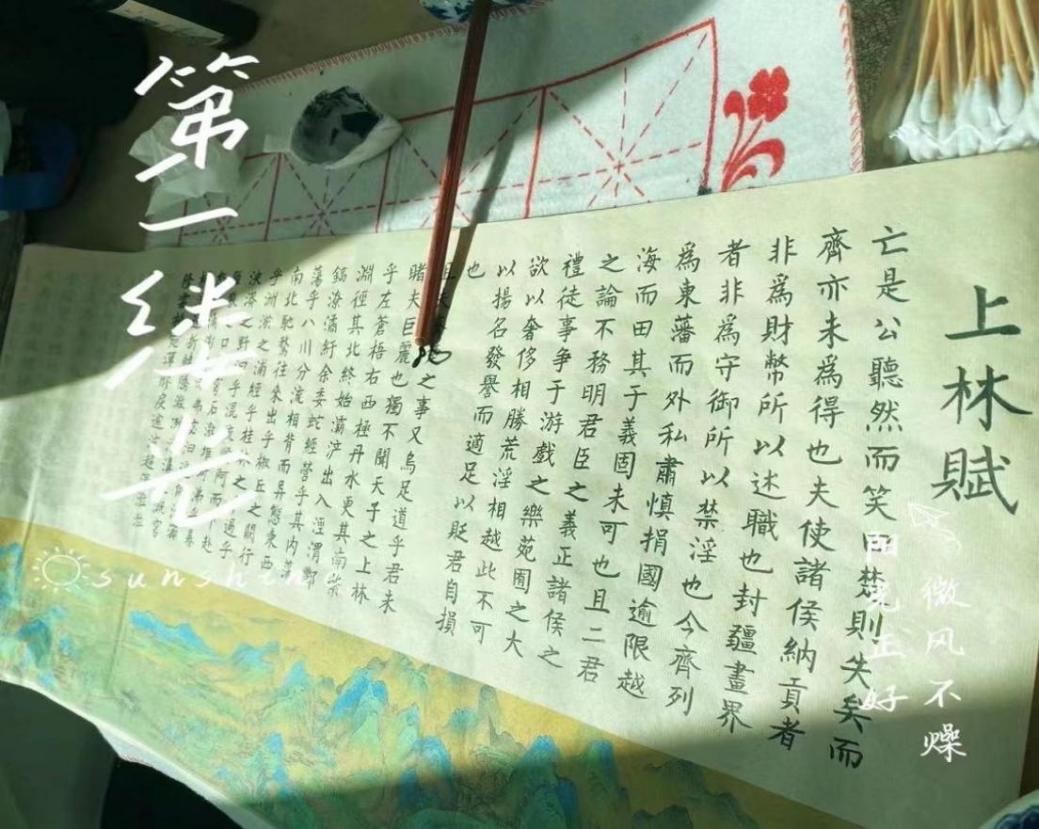 第一缕光
上林賦
亡是公聽然而笑曰楚則失矣而
齊亦未為得也夫使諸侯納貢者
非為財幣所以述職也封疆畫界
者非為守御所以禁淫也今齊列
為東藩而外私肅慎捐國逾限越
海而田其于義固未可也且二君
之論不務明君臣之義正諸侯之
禮徒事争于游戲之樂苑囿之大
欲以奢侈相勝荒淫相越此不可
以揚名發譽而適足以貶君自損
也
且夫之事又烏足道乎君未
睹夫巨麗也獨不聞天子之上林
乎左蒼梧右西極丹水更其南紫
淵徑其北終始灞滻出入涇渭酆
鎬潦潏紆余委蛇經營乎其內蕩
蕩乎八川分流相背而異態東西
南北馳騖往來出乎椒丘之闕行
乎洲淤之浦經乎桂林之中過乎
sunshin
微风不燥
阳光正好